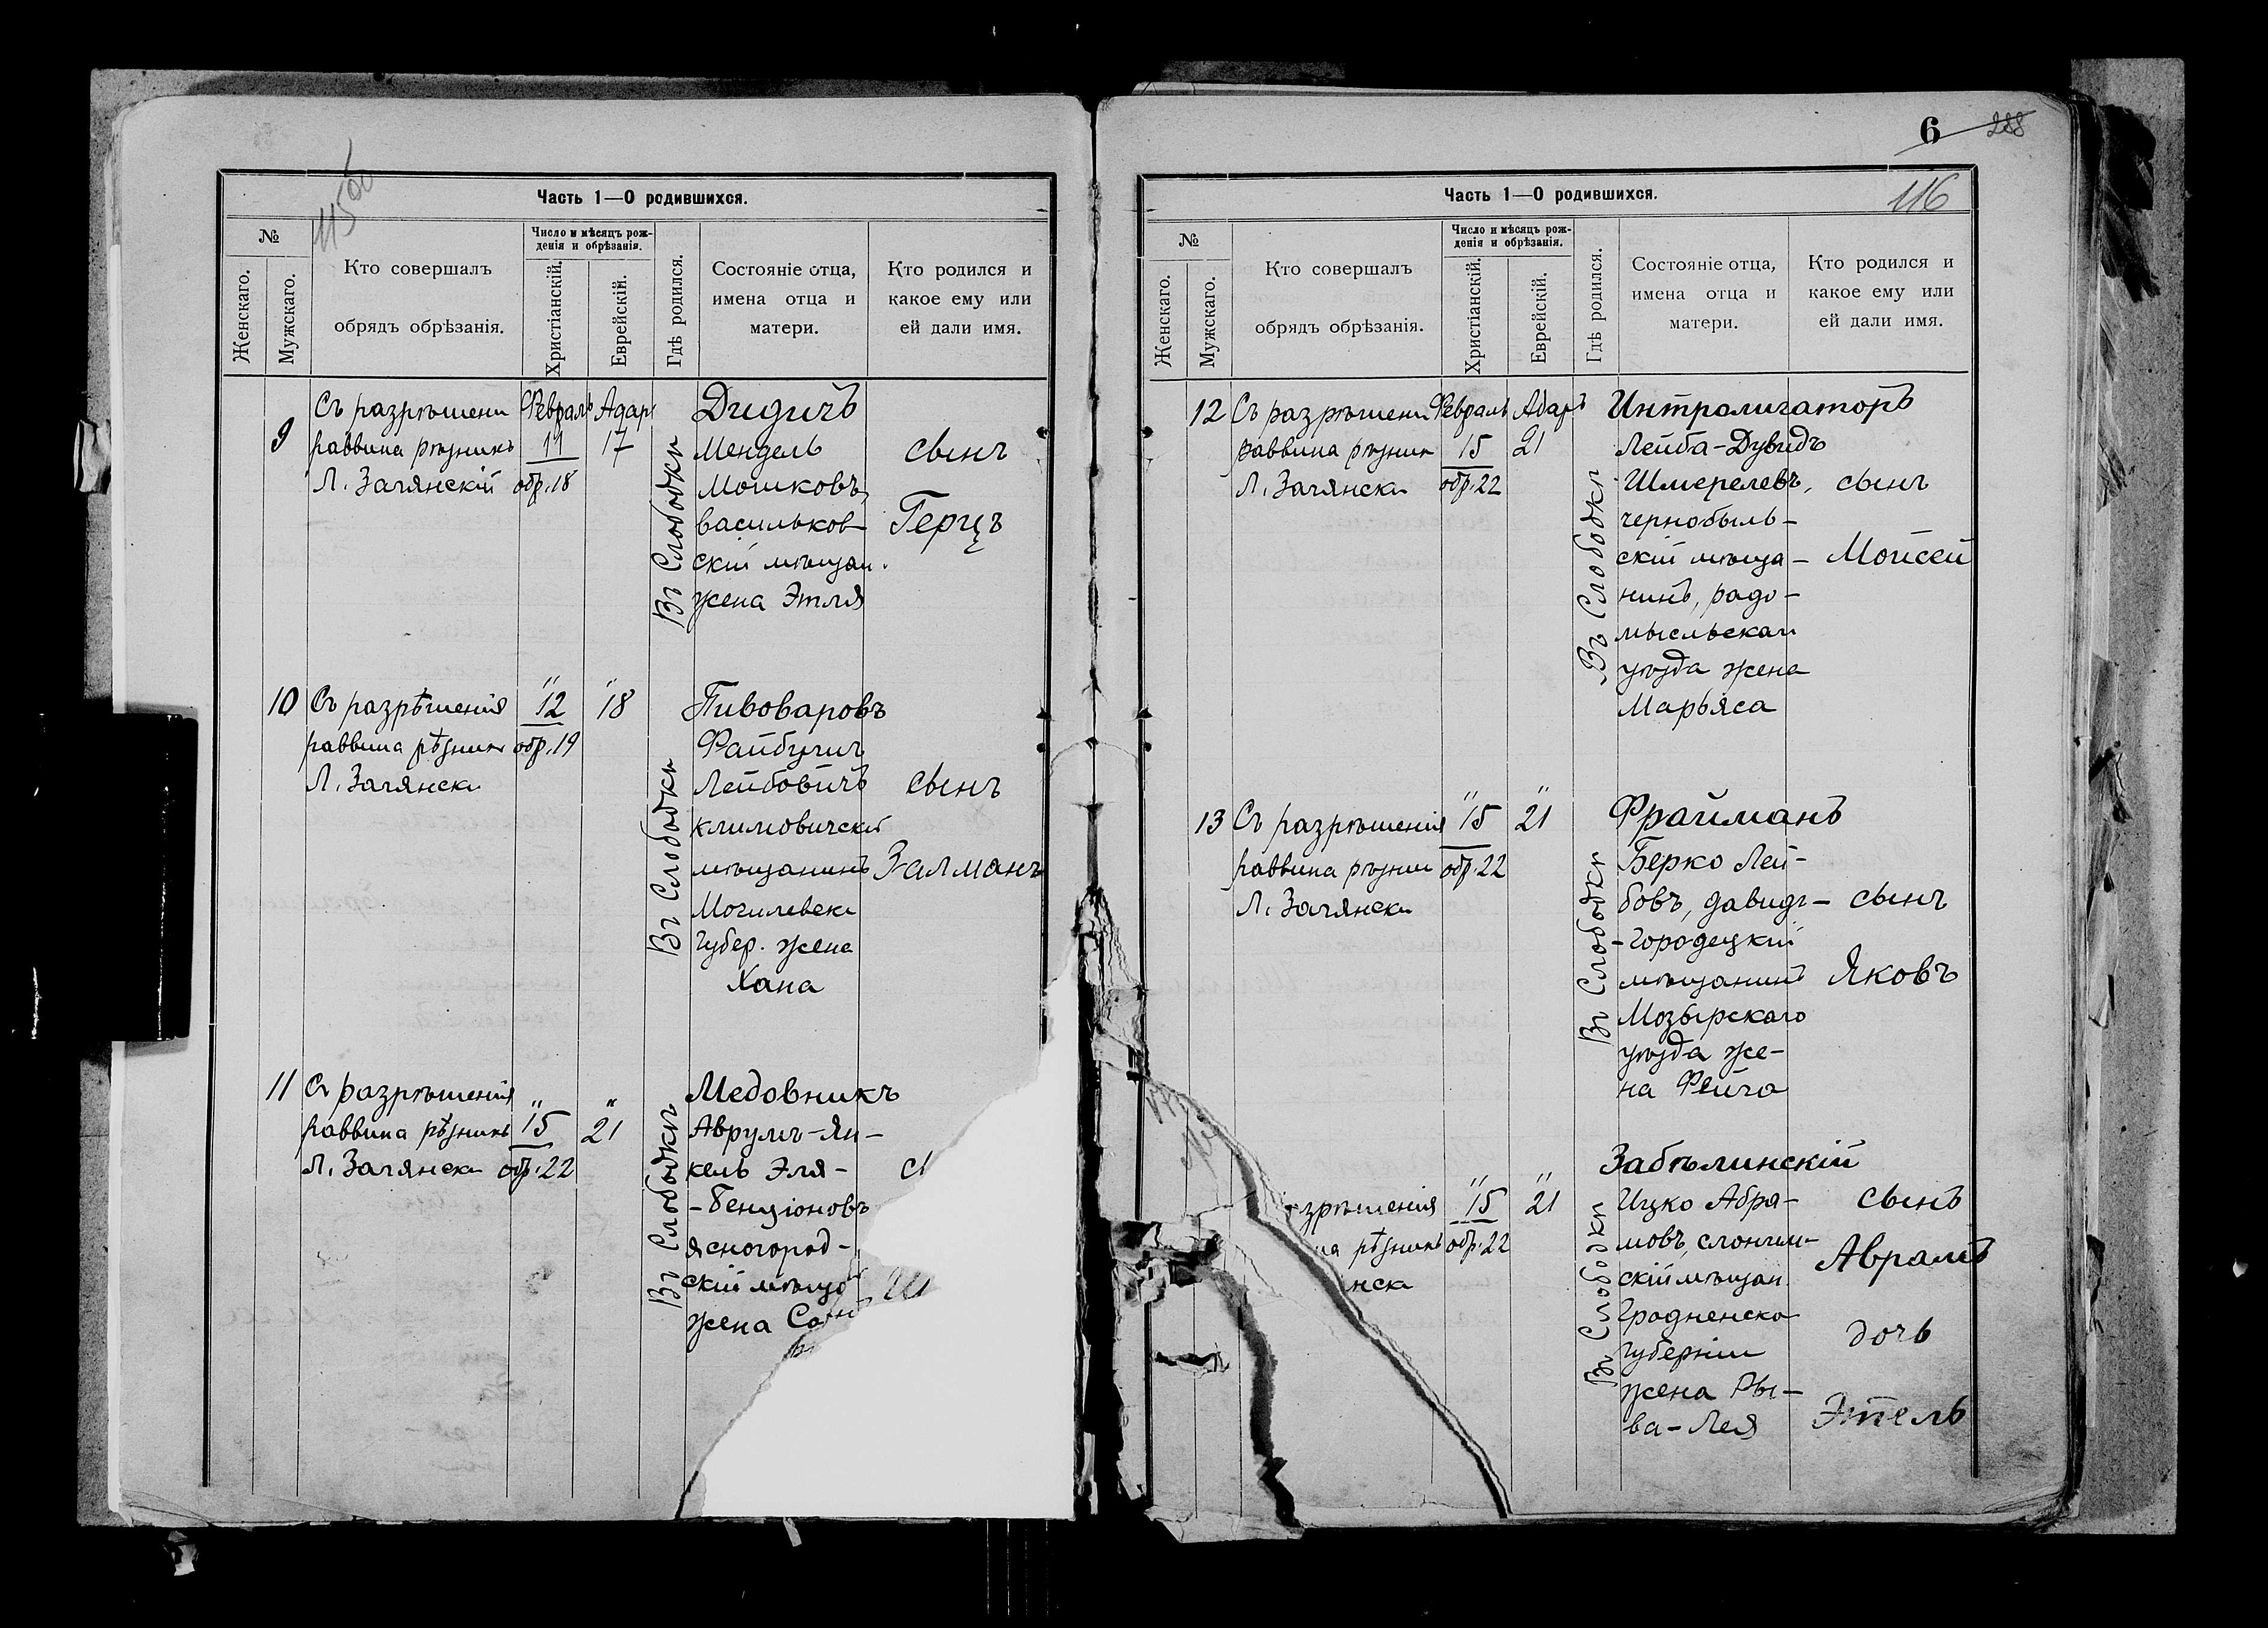 115об
Часть 1—О родившихся.
№
Женскаго.
Мужскаго.
Кто совершалъ
обрядъ обрѣзанія.
Число и мѣсяцъ рож-
денія и обрѣзанія.
Христіанскій.
Еврейскій.
Гдѣ родился.
Состояніе отца,
имена отца и
матери.
Кто родился и
какое ему или
ей дали имя.
9
Съ разрѣшени
раввина рѣзникъ
Л. Загянскій
Февраль
11
обр. 18
Адаръ
17
Въ Слободкѣ
Дидичъ
Мендель
Мошковъ,
васильков-
скій мѣщан.
жена Этля
сынъ
Герцъ
10
Съ разрѣшенія
раввина рѣзник
Л. Загянск
" 12
обр. 19
" 18
Въ Слободкѣ
Пивоваровъ
Файбушъ
Лейбовичъ
климовичскій
мѣщанинъ
Могилевск
губер. жена
Хана
сынъ
Залманъ
11
Съ разрѣшенія
раввина рѣзникъ
Л. Загянск
" 15
обр. 22
" 21
Въ Слободкѣ
Медовникъ
Аврумъ-Ян-
кель Эля-
-Бенціоновъ
ясногород-
скій мѣща
жена
6 288
116
Часть 1—О родившихся.
№
Женскаго.
Мужскаго.
Кто совершалъ
обрядъ обрѣзанія.
Число и мѣсяцъ рож-
денія и обрѣзанія.
Христіанскій.
Еврейскій.
Гдѣ родился.
Состояніе отца,
имена отца и
матери.
Кто родился и
какое ему или
ей дали имя.
12
Съ разрѣшени
раввина рѣзник
Л. Загянск
Февраль
15
обр. 22
Адаръ
21
Въ Слободкѣ
Интролигаторъ
Лейба-Дувидъ
Шмерелевъ,
чернобыль-
скій мѣща-
нинъ, радо-
мысльскаго
уѣзда жена
Марьяса
сынъ
Мойсей
13
Съ разрѣшенія
раввина рѣзник
Л. Загянск
" 15
обр. 22
" 21
Въ Слободкѣ
Фрайманъ
Берко Лей-
бовъ, давидъ-
-городецкій
мѣщанинъ
Мозырскаго
уѣзда же-
на Фейга
сынъ
Яковъ
зрѣшенія
на рѣзникъ
нск
" 15
обр. 22
" 21
Въ Слободкѣ
Забѣлинскій
Ицко Абра-
мовъ, слоним-
скій мѣщан
Гродненско
губерніи
жена Ры-
ва-Лея
сынъ
Аврамъ
дочь
Этель